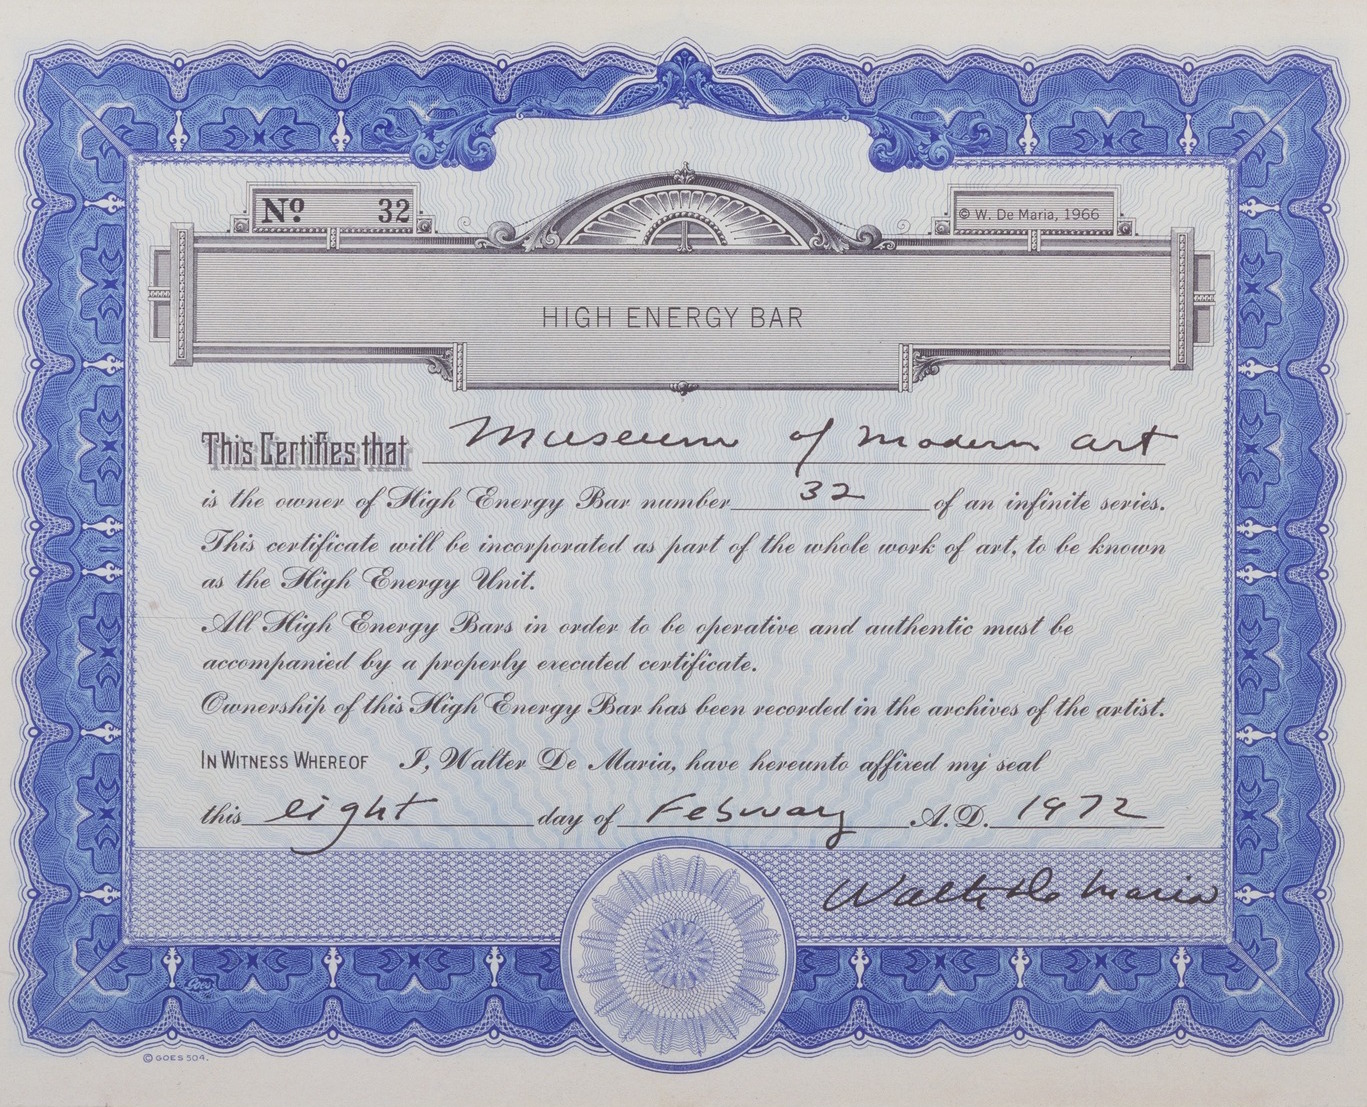 Nº 32
© W. De Maria, 1966
HIGH ENERGY BAR
This Certifies that Museum of Modern art
is the owner of High Energy Bar number 32 of an infinite series.
This certificate will be incorporated as part of the whole work of art, to be known
as the High Energy Unit.
All High Energy Bars in order to be operative and authentic must be
accompanied by a properly executed certificate.
Ownership of this High Energy Bar has been recorded in the archives of the artist.
IN WITNESS WHEREOF I, Walter De Maria, have hereunto affixed my seal
this eight day of February A.D. 1972
Walter De Maria
Goes
© GOES 504.